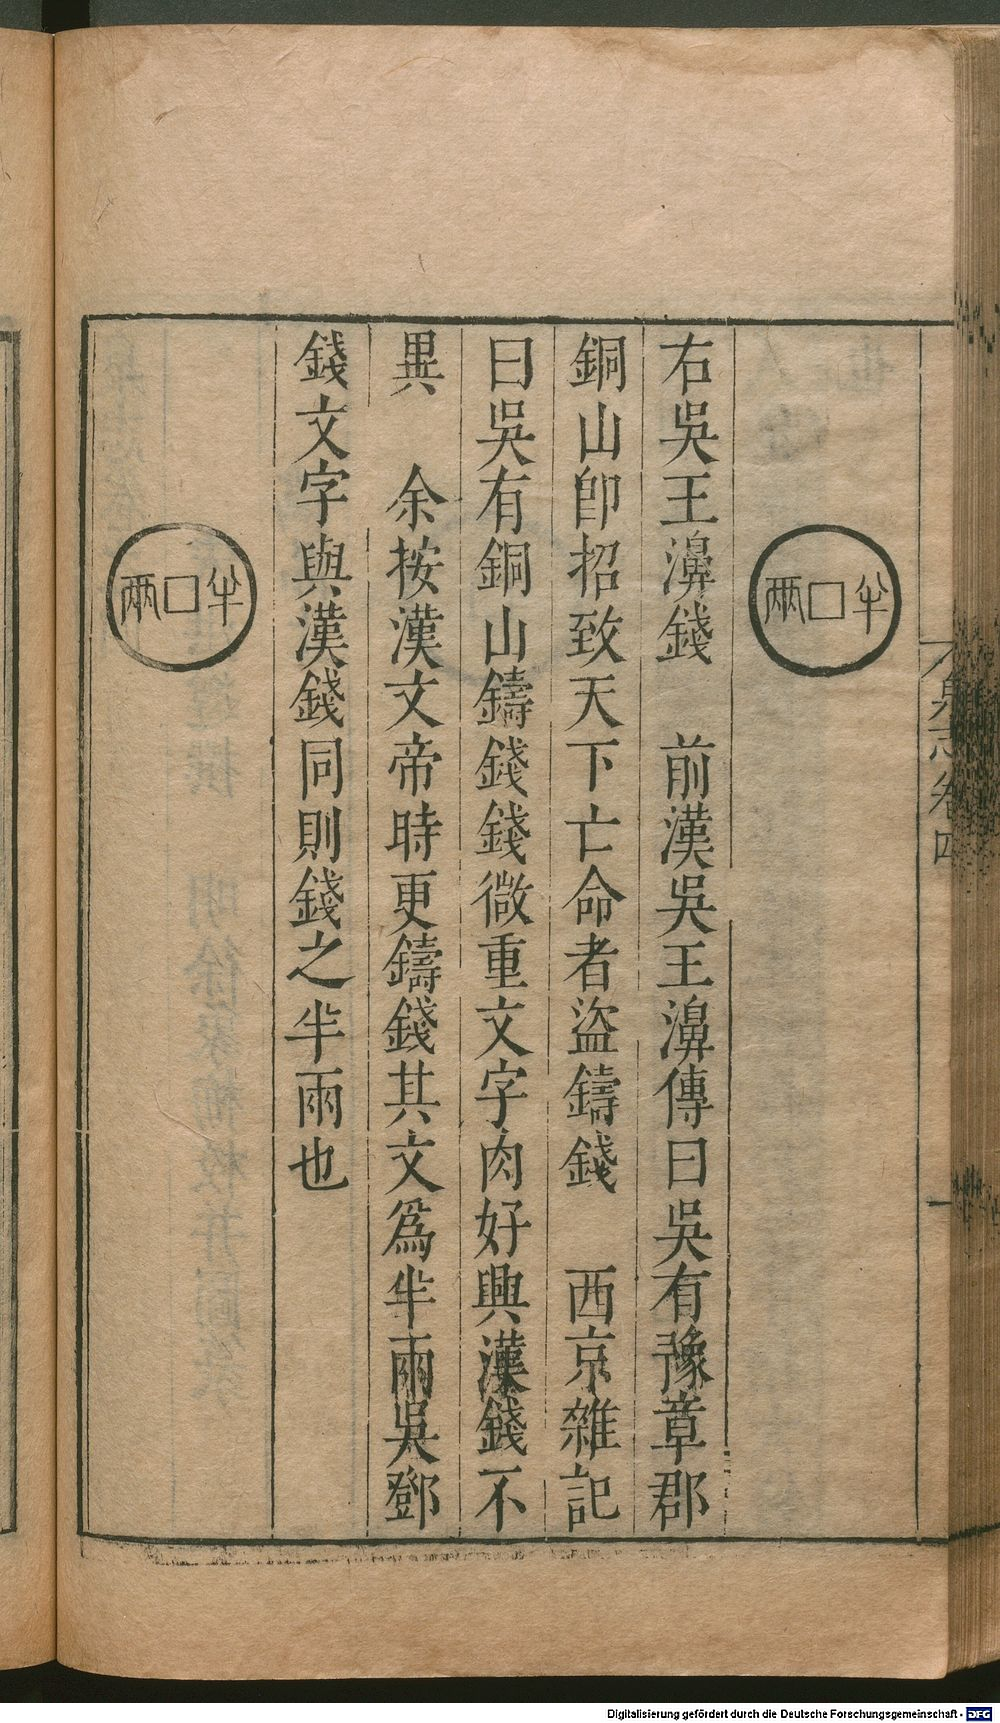 半兩
右吳王濞錢　前漢吳王濞傳曰吳有豫章郡
銅山卽招致天下亡命者盜鑄錢　西京雜記
曰吳有銅山鑄錢錢微重文字肉好興漢錢不
異　余按漢文帝時更鑄錢其文爲半兩吳鄧
錢文字與漢錢同則錢之半兩也
半兩
泉志卷四
一
Digitalisierung gefördert durch die Deutsche Forschungsgemeinschaft - DFG